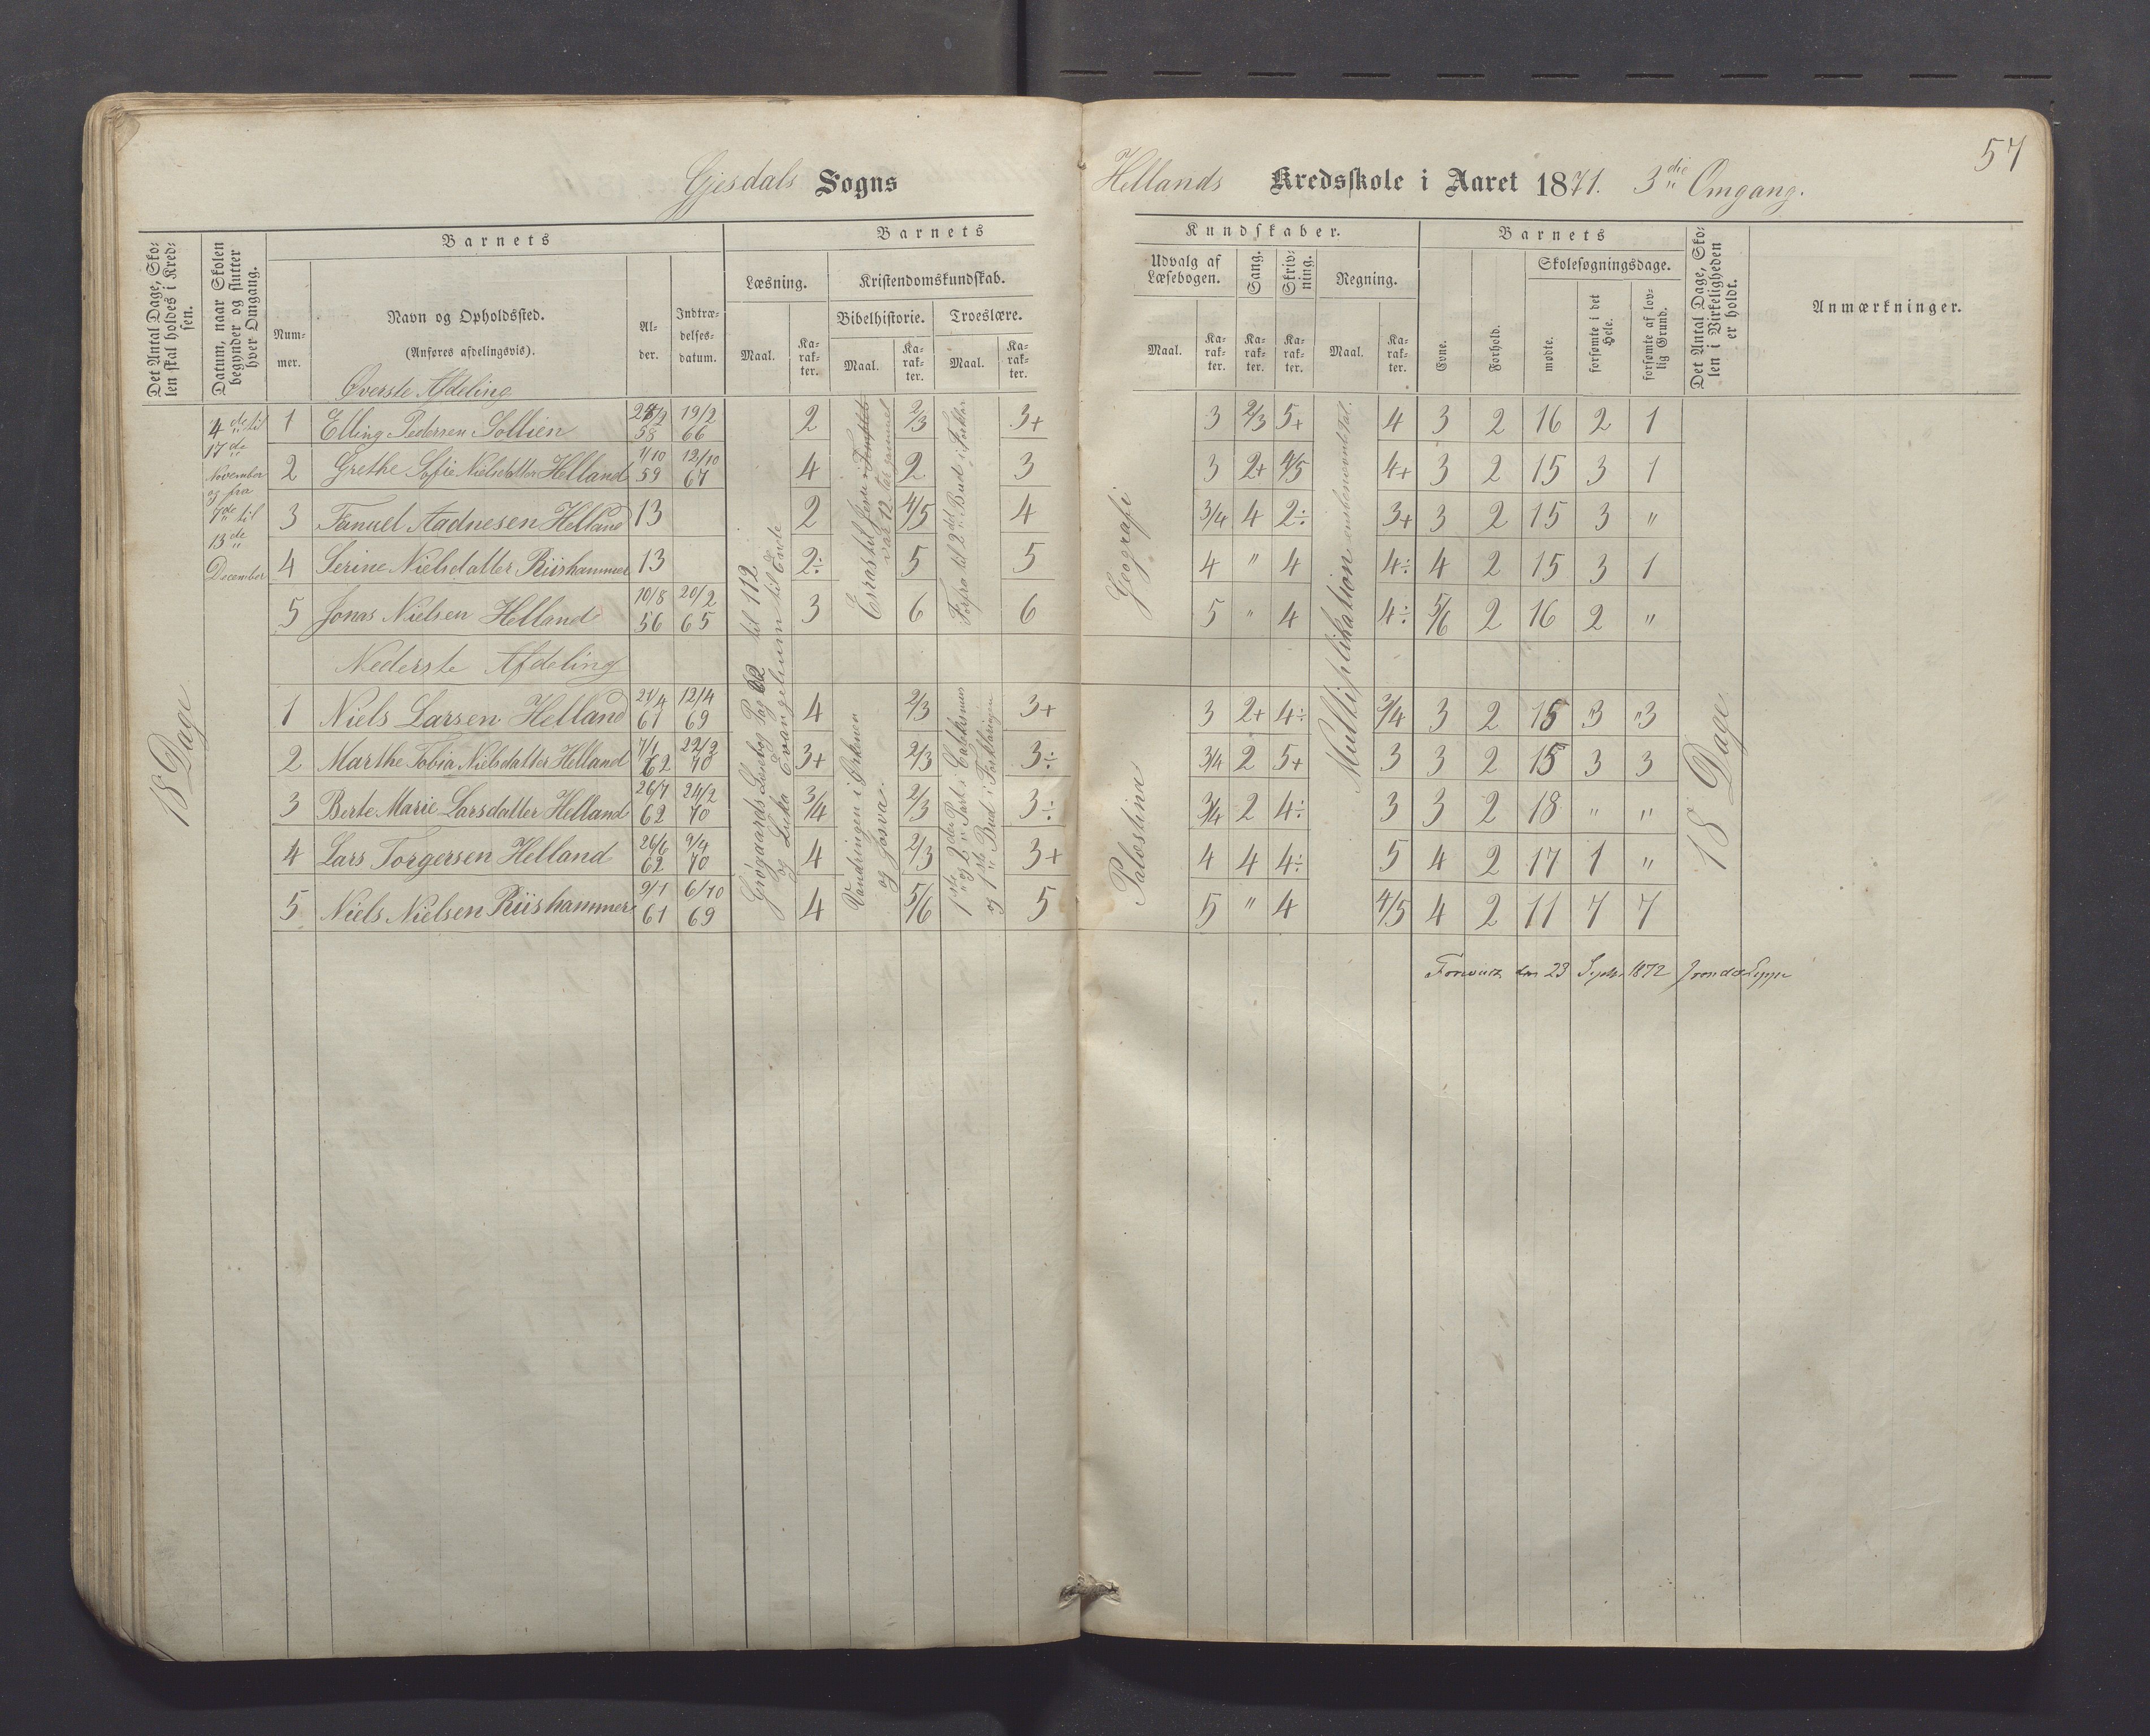 57
Gjesdals Sogns
Hellands Kredsskole i Aaret 1871. 3die Omgang.
Det Antal Dage, Skolen skal holdes i Kredsen.
Datum, naar Skolen begynder og slutter hver Omgang.
Barnets
Nummer.
Navn og Opholdssted.
(Anføres afdelingsvis).
Alder.
Indtrædelsesdatum.
Barnets
Læsning.
Maal.
Karakter.
Kristendomskundskab.
Bibelhistorie.
Maal.
Karakter.
Troeslære.
Maal.
Karakter.
Kundskaber.
Udvalg af Læsebogen.
Maal.
Karakter.
Sang.
Karakter.
Skrivning.
Karakter.
Regning.
Maal.
Karakter.
Barnets
Evne.
Forhold.
Skolesøgningsdage.
mødte.
forsømte i det Hele.
forsømte af lovlig Grund.
Det Antal Dage, Skolen i Virkeligheden er holdt.
Anmærkninger.
18 Dage
4de til
17de
November
og fra
7de til
13de
December
Øverste Afdeling
1 Elling Pedersen Sollien 58 19/2 66 2 2/3 3+ 3 2/3 5+ 4 3 2 16 2 1
2 Grethe Sofie Nielsdatter Helland 1/10 59 12/10 67 4 2 3 3 2+ 4/5 4+ 3 2 15 3 1
3 Tanuel Aadnesen Helland 13 2 4/5 4 3/4 4 2÷ 3+ 3 2 15 3 "
4 Serine Nielsdatter Riishammer 13 2÷ 5 5 4 " 4 4÷ 4 2 15 3 1
5 Jonas Nielsen Helland 10/8 56 20/2 65 3 6 6 5 " 4 4÷ 5/6 2 16 2 "
Nederste Afdeling
1 Niels Larsen Helland 21/4 61 12/4 69 4 2/3 3+ 3 2+ 4÷ 3/4 3 2 15 "3 "3
2 Marthe Tobia Nielsdatter Helland 7/1 62 22/2 70 3+ 2/3 3÷ 3/4 2 5+ 3 3 2 15 3 3
3 Berte Marie Larsdatter Helland 26/7 62 24/2 70 3/4 2/3 3÷ 3/4 2 4÷ 3 3 2 18 " "
4 Lars Torgersen Helland 26/6 62 9/4 70 4 2/3 3+ 4 4 4÷ 5 4 2 17 1 "
5 Niels Nielsen Riishammer 9/1 61 6/10 69 4 5/6 5 5 " 4 4/5 4 2 11 7 7
Grøgaards Læsebog Pag 62 til 112
og Luka Evangelium til Ende
Esras til
Vandringen i Ørkenen
og Josva.
Forfra til 2det Bud i Forklar
1ste og 2den Part i Catekismus
og 1ste Bud i Forklaringen
Geografi
Palæstina
Multiplikation
18 Dage
den 23 Septr. 1872